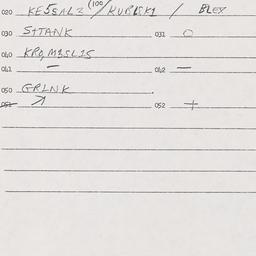 020 KESSAL3 (100/KUBLSKI / BLEY
030 SITANK 031 O
040 KRO, MISLIS
041 – 042 –
050 GRLNK
051 ↗ 052 +